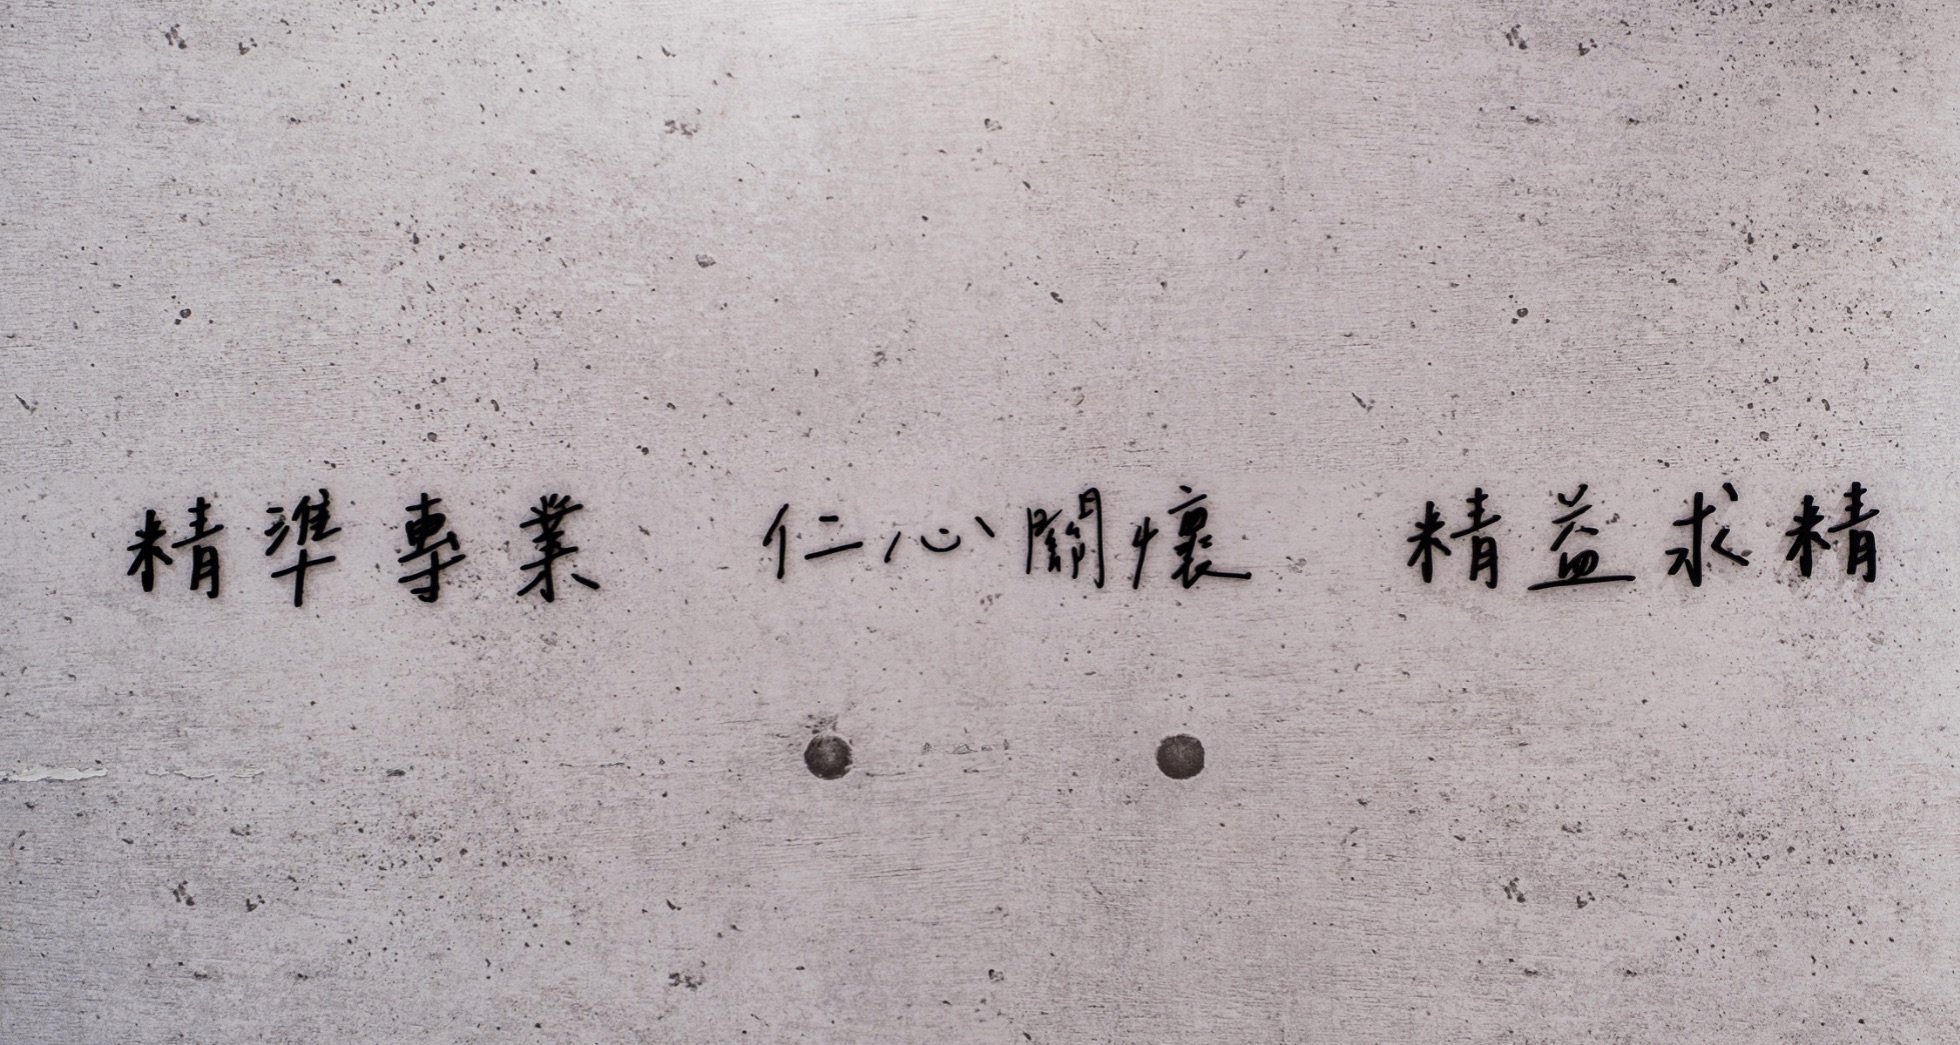 精準專業 仁心關懷 精益求精